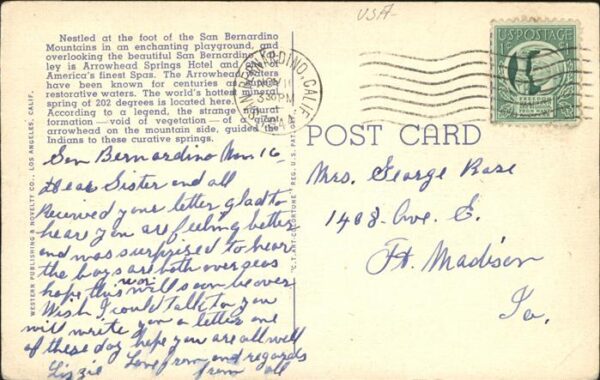 USA-
Nestled at the foot of the San Bernardino
Mountains in an enchanting playground, and
overlooking the beautiful San Bernardino
ley is Arrowhead Springs Hotel and
America's finest Spas. The Arrowhead waters
have been known for centuries as
restorative waters. The world's hottest mineral
spring of 202 degrees is located here.
According to a legend, the strange natural
formation - void of vegetation - of a giant
arrowhead on the mountain side, guided the
Indians to these curative springs.
SAN BERNARDINO, CALIF.
NOV
PM
U.S. POSTAGE
1¢
POST CARD
WESTERN PUBLISHING & NOVELTY CO., LOS ANGELES, CALIF.
"C.T. ART-COLORTONE" REG. U.S. PAT. OFF.
San Bernardino Nov 16
Dear Sister and all
Received your letter glad to
hear you are feeling better
and was surprized to hear
the boys are both overseas
hope this war will soon be over
Wish I could talk to you
will write you a letter one
of these day hope you are all well
Lizzie Love from and regards
from all
Mrs. George Rase
1408 - Ave. E.
Ft. Madison
Ia.